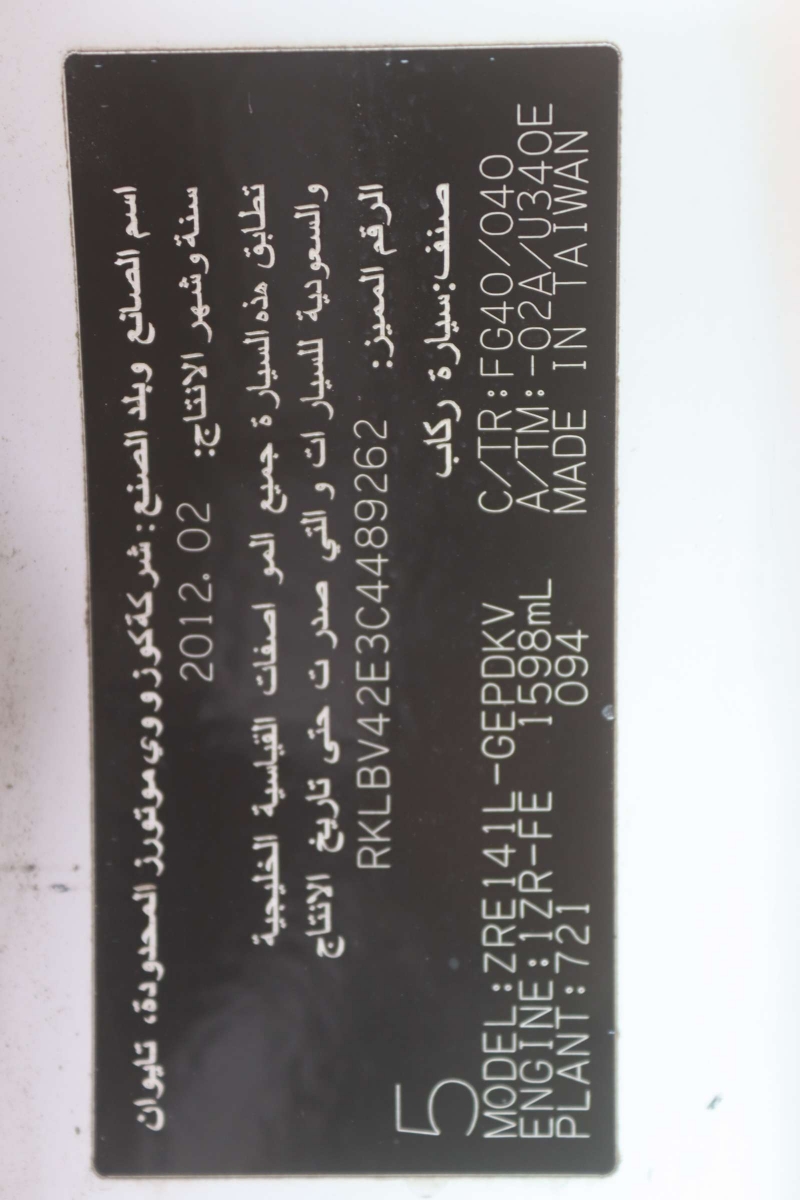 اسم الصانع وبلد الصنع: شركة كوزووي موتورز المحدودة، تايوان
سنة وشهر الانتاج: 2012.02
تطابق هذه السيارة جميع المواصفات القياسية الخليجية
والسعودية للسيارات والتي صدرت حتى تاريخ الانتاج
الرقم المميز: RKLBV42E3C4489262
صنف:سيارة ركاب
5
MODEL:ZRE141L-GEPDKV C/TR:FG40/040
ENGINE:1ZR-FE 1598mL A/TM:-02A/U340E
PLANT:721 094 MADE IN TAIWAN